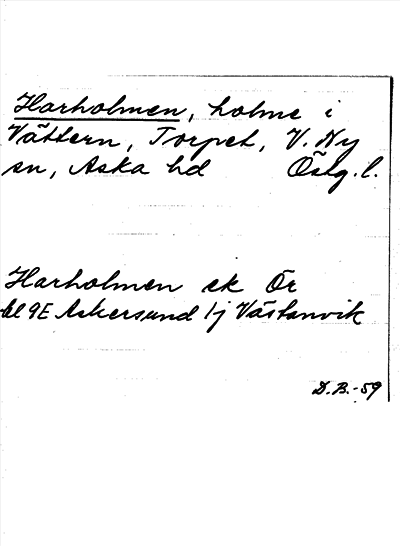 Harholmen, holme i
Vättern, Torpet, V. Ny
sn, Aska hd Östg. l.
Harholmen ek Ör
bl 9E Askersund 1j Västanvik
D.B.-59